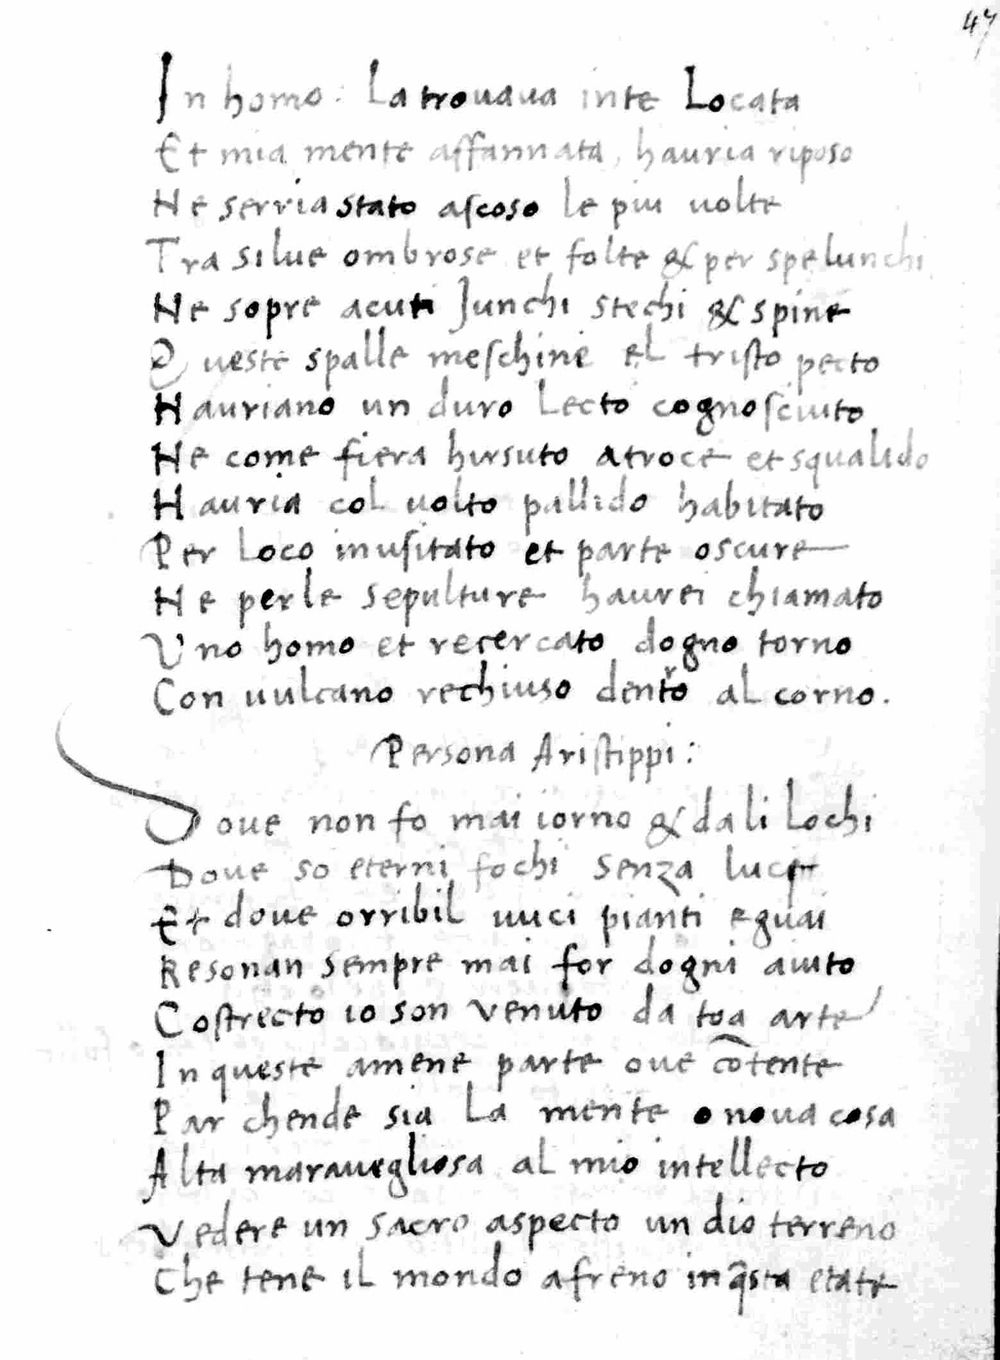 47
In homo: La trouaua inte Locata
Et mia mente affannata, hauria riposo
Ne serria stato ascoso le piu uolte
Tra silue ombrose et folte & per spelunchi
Ne sopre acuti Junchi stechi & spine
Queste spalle meschine el tristo pecto
Hauriano un duro Lecto cognosciuto
Ne come fiera hirsuto atroce et squalido
Hauria col uolto pallido habitato
Per Loco inusitato et parte oscure
Ne perle sepulture haurei chiamato
Vno homo et recercato dogno torno
Con uulcano rechiuso dentro al corno.
Persona Aristippi:
Doue non fo mai iorno & da li Lochi
Doue so eterni fochi senza luce
Et doue orribil uuci pianti e guai
Resonan sempre mai for dogni aiuto
Costrecto io son venuto da toa arte
In queste amene parte oue cōtente
Par chende sia La mente o noua cosa
Alta marauegliosa al mio intellecto
Vedere un sacro aspecto un dio terreno
Che tene il mondo afreno in q̄sta etate